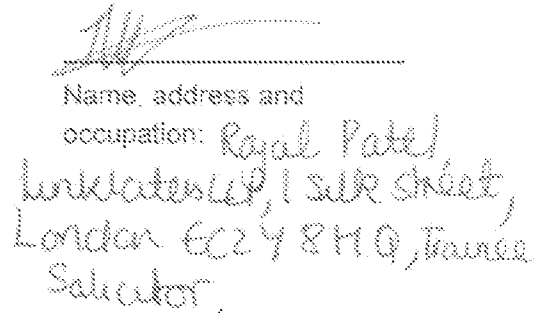 Name, address and
occupation: Rajal Patel
Linklaters LLP, 1 Silk Street,
London EC2Y 8HQ, Trainee
Solicitor.